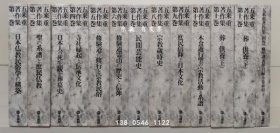 五来重著作集 第一巻 日本仏教民俗学の構築
五来重著作集 第二巻 聖の系譜と庶民仏教
五来重著作集 第三巻 日本人の死生観と葬墓史
五来重著作集 第四巻 寺社縁起と伝承文化
五来重著作集 第五巻 修験道の修行と宗教民俗
五来重著作集 第六巻 修験道霊山の歴史と信仰
五来重著作集 第七巻 民間芸能史
五来重著作集 第八巻 宗教歳時史
五来重著作集 第九巻 庶民信仰と日本文化
五来重著作集 第十巻 木食遊行聖の宗教活動と系譜
五来重著作集 第十一巻 葬と供養(上)
五来重著作集 第十二巻 葬と供養(下)
138 0546 1122